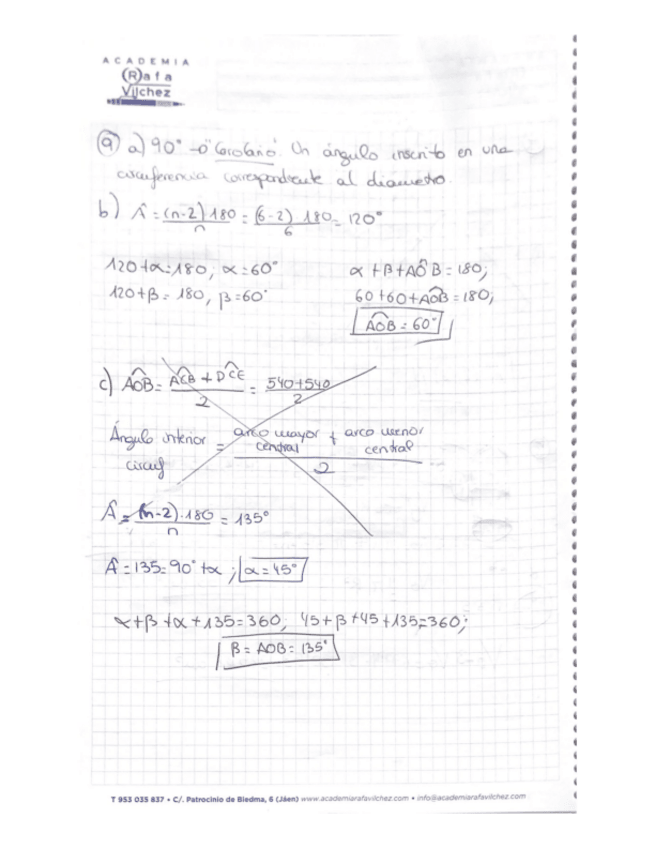 ACADEMIA
(R)afa
Vílchez
9 a) 90° → "Corolario". Un ángulo inscrito en una
circunferencia correspondiente al diámetro.
b) Â = (n-2)·180/n = (6-2)·180/6 = 120°
120+α=180; α=60°
120+β=180, β=60°
α+β+AÔB=180;
60+60+AÔB=180;
AÔB=60°
c) AÔB = (AĈB + DĈE)/2 = (540+540)/2
Ángulo interior circuf = (arco mayor central + arco menor central)/2
Â = (n-2)·180/n = 135°
Â=135=90°+α; α=45°
α+β+α+135=360; 45+β+45+135=360;
β = AOB = 135°
T 953 035 837 • C/. Patrocinio de Biedma, 6 (Jáen) www.academiarafavilchez.com • info@academiarafavilchez.com